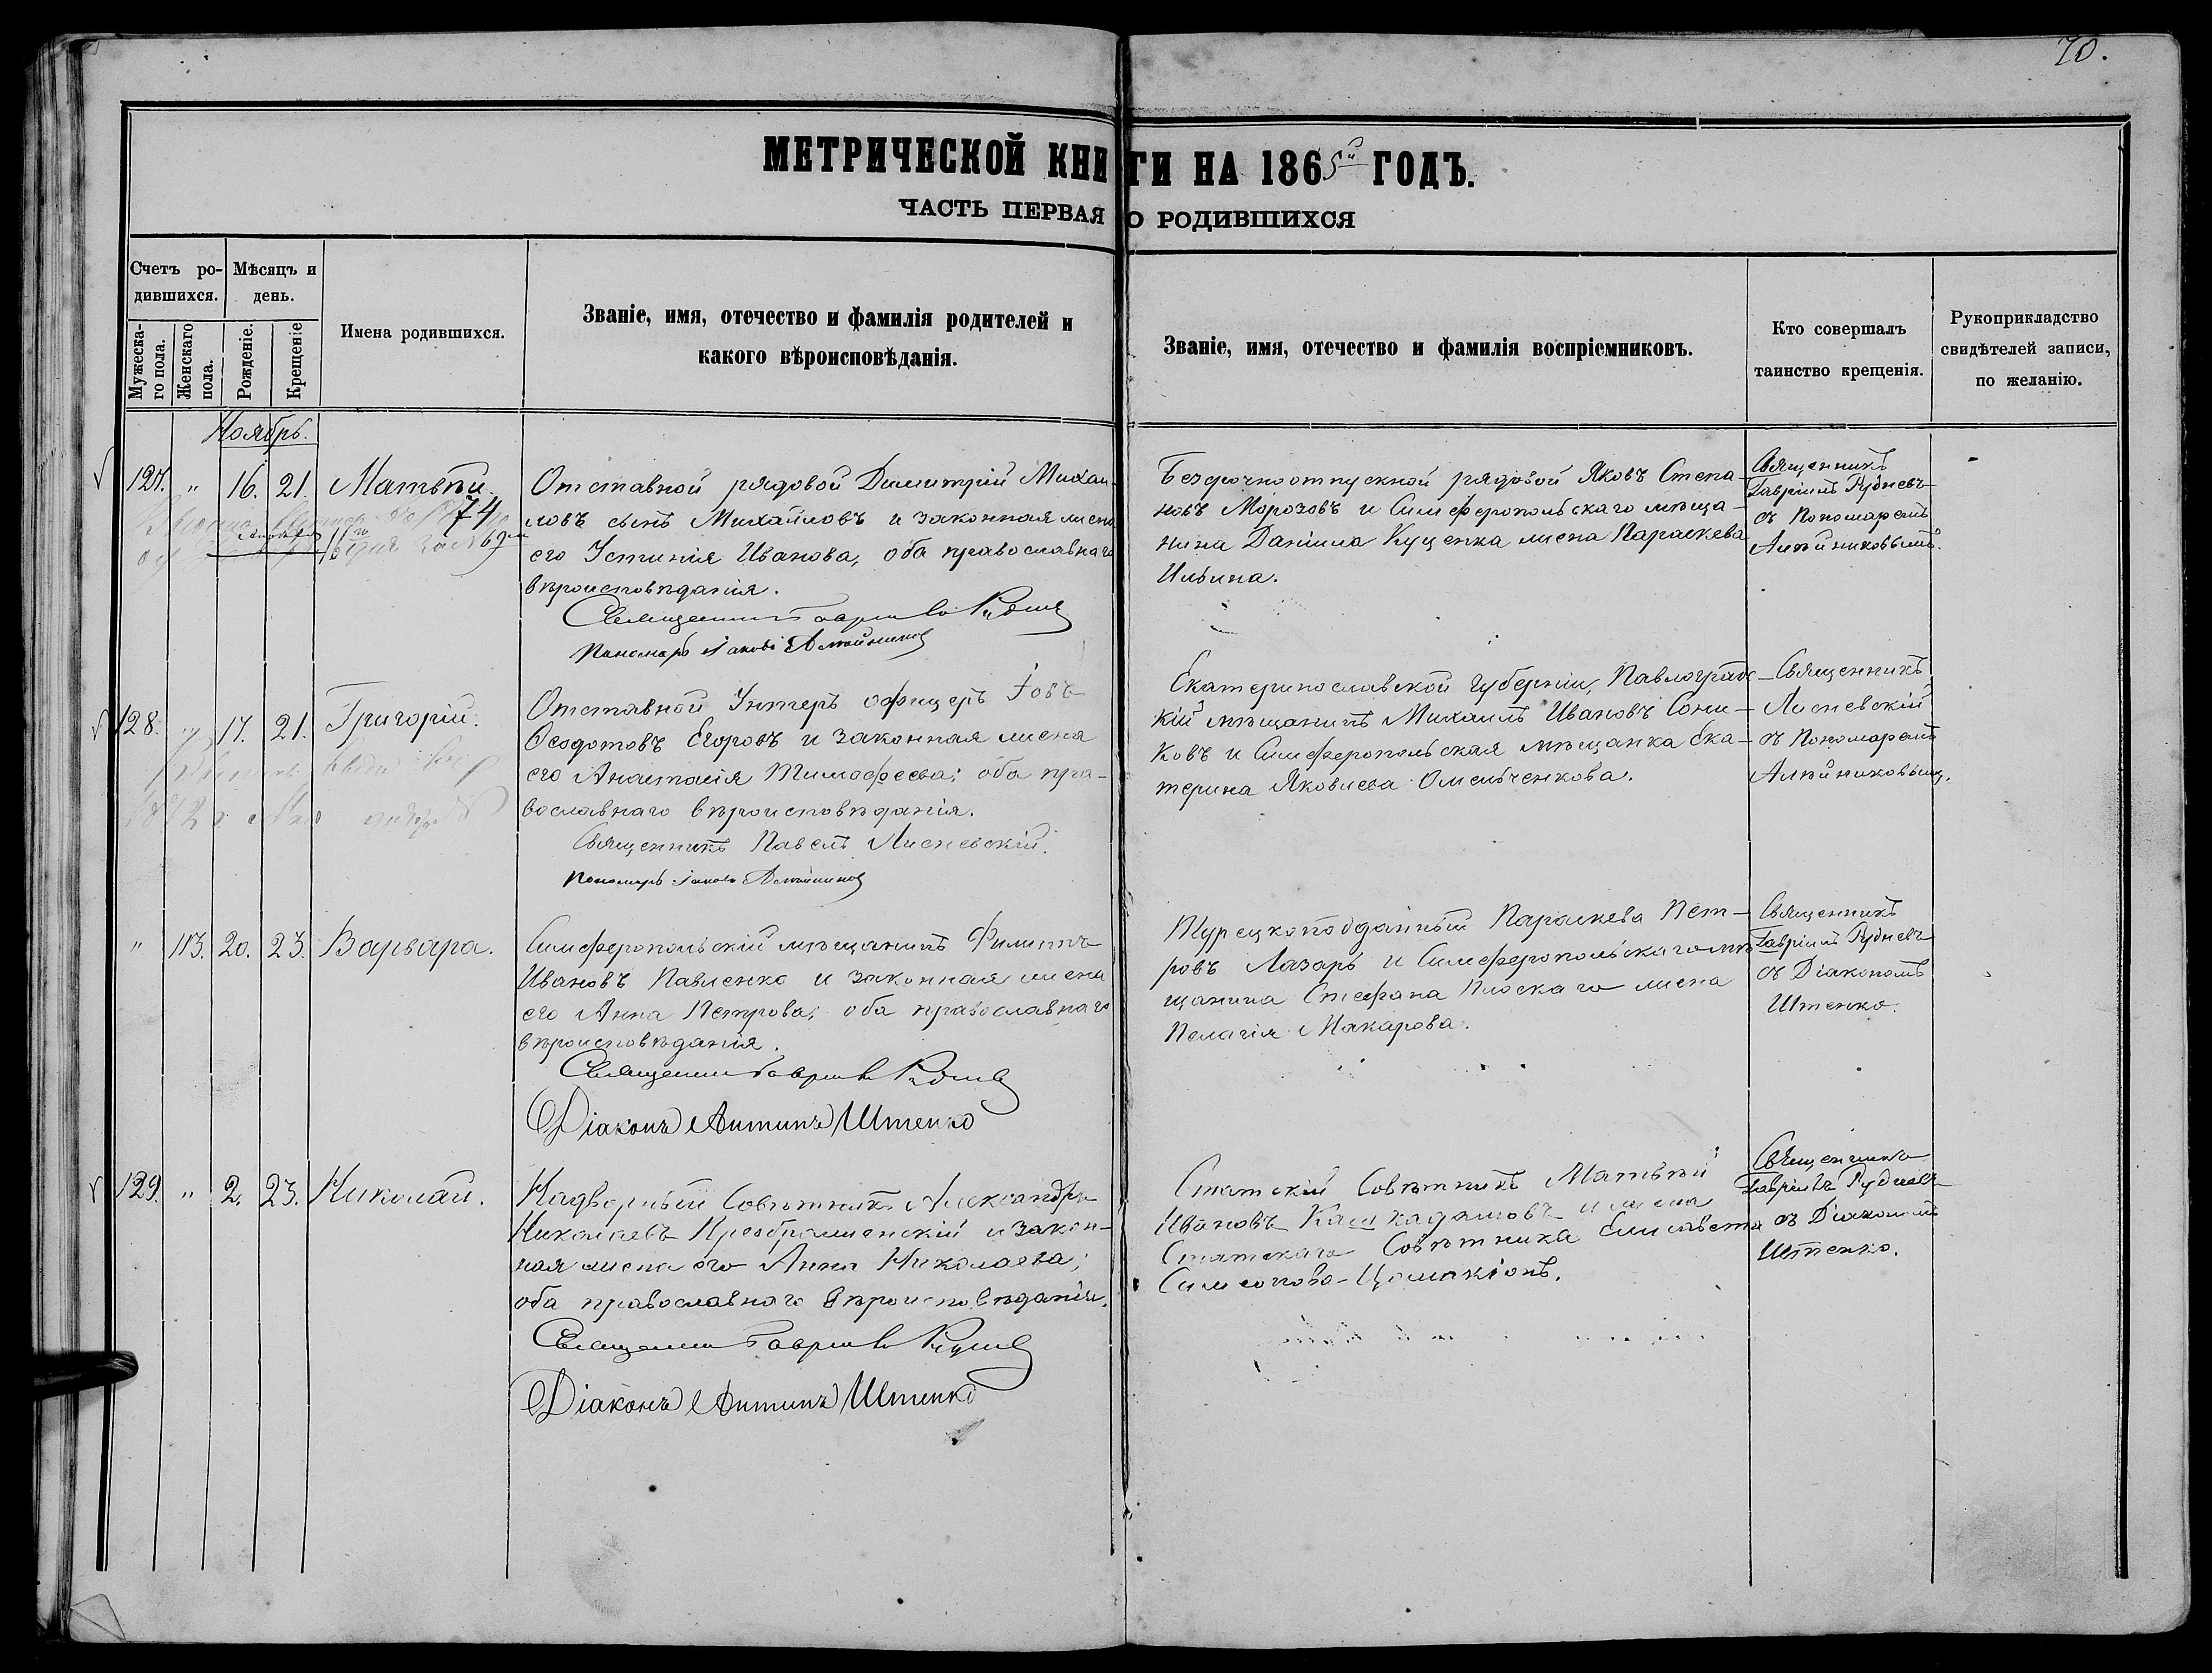 70.
МЕТРИЧЕСКОЙ КНИГИ НА 1865й ГОДЪ.
ЧАСТЬ ПЕРВАЯ О РОДИВШИХСЯ
Счетъ ро-
дившихся.
Мѣсяцъ и
день.
Мужеска-
го пола.
Женскаго
пола.
Рожденіе.
Крещеніе
Имена родившихся.
Званіе, имя, отечество и фамилія родителей и
какого вѣроисповѣданія.
Званіе, имя, отечество и фамилія воспріемниковъ.
Кто совершалъ
таинство крещенія.
Рукоприкладство
свидѣтелей записи,
по желанію.
Ноябрь.
127. " 16. 21. Матвѣй.
Отставной рядовой Димитрій Михаи-
ловъ сынъ Михайловъ и законная жена
его Устинія Иванова, оба православнаго
вѣроисповѣданія.
Священникъ Гавріилъ Рудневъ
Пономарь Іаковъ Алѣйниковъ
Безсрочноотпускной рядовой Яковъ Степа-
новъ Морозовъ и Симферопольскаго мѣща-
нина Даніила Куценка жена Параскева
Ильина.
Священникъ
Гавріилъ Рудневъ
съ Пономаремъ
Алѣйниковымъ.
128. " 17. 21. Григорій.
Отставной Унтеръ офицеръ Іовъ
Ѳеодотовъ Егоровъ и законная жена
его Анастасія Тимофеева; оба пра-
вославнаго вѣроисповѣданія.
Священникъ Павелъ Лисневскій.
Пономарь Іаковъ Алѣйниковъ
Екатеринославской губерніи, Павлоград-
кій мѣщанинъ Михаилъ Ивановъ Сони-
ковъ и Симферопольская мѣщанка Ека-
терина Яковлева Омельченкова.
Священникъ
Лисневскій
съ Пономаремъ
Алѣйниковымъ.
" 113. 20. 23. Варвара.
Симферопольскій мѣщанинъ Филиппъ
Ивановъ Павленко и законная жена
его Анна Петрова; оба православнаго
вѣроисповѣданія.
Священникъ Гавріилъ Рудневъ
Діаконъ Антипъ Штенко
Турецкоподданный Параскева Пет-
ровъ Лазарь и Симферопольскаго мѣ-
щанина Стефана Плоскаго жена
Пелагія Макарова.
Священникъ
Гавріилъ Рудневъ
съ Діакономъ
Штенко.
129. " 2. 23. Николай.
Надворный Совѣтникъ Александръ
Николаевъ Преображенскій и закон-
ная жена его Анна Николаева;
оба православнаго вѣроисповѣданія.
Священникъ Гавріилъ Рудневъ
Діаконъ Антипъ Штенко
Статскій Совѣтникъ Матвѣй
Ивановъ Кашкадамовъ и жена
Статскаго Совѣтника Елисавета
Симеонова
Священникъ
Гавріилъ Рудневъ
съ Діакономъ
Штенко.